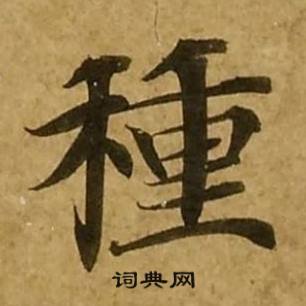 種
词典网